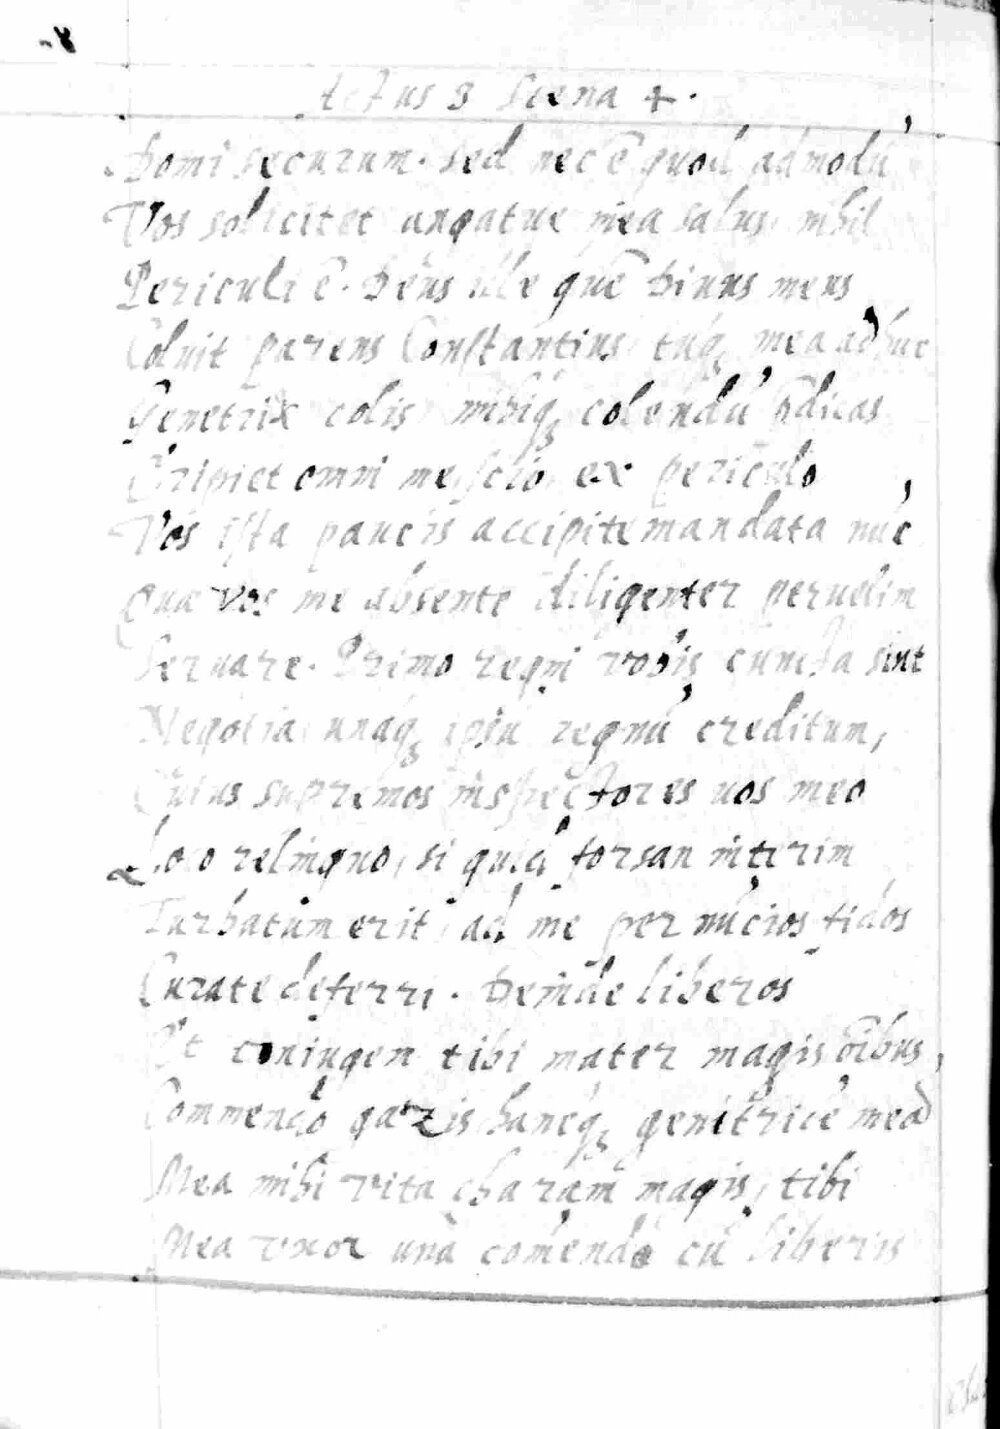 Actus 3 Scena 4.
Domi securum. sed nec ē quod admodū
Vos solicitet angatue mea salus, nihil
Periculi ē. Deus ille quē Diuus meus
Coluit parens Constantius, tuq̨ mea adhuc
Genetrix colis, mihiq̨ colendū p̄dicas
Eripiet omni me, scio, ex periculo
Vos ista paucis accipite mandata nūc
Quæ vos me absente diligenter peruelim
Seruare. Primo regni vobis cuncta sint
Negotia, unaq̨ ipsū regnū creditum,
Cuius supremos inspectores uos meo
Loco relinquo, si quid forsan interim
Turbatum erit, ad me per nūcios fidos
Curate deferri. Deinde liberos
Et coniugem tibi mater magis oībus
Commendo gazis, hancq̨ genitricē meā
Mea mihi vita charam magis, tibi
Mea vxor unā cōmendo cū liberis